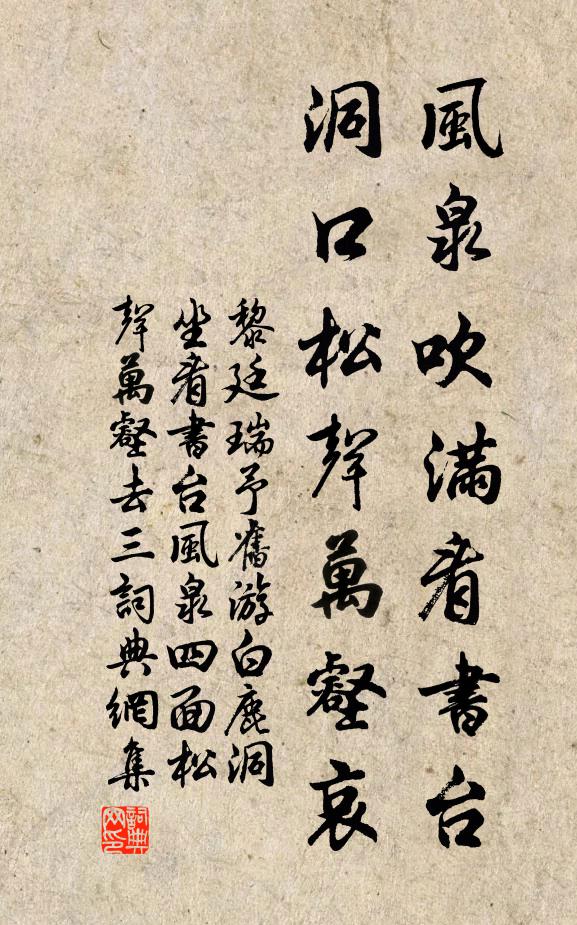 風泉吹滿看書台
洞口松聲萬壑哀
黎廷瑞予舊游白鹿洞
坐看書台風泉四面松
聲萬壑去三詞典網集
詞典網印